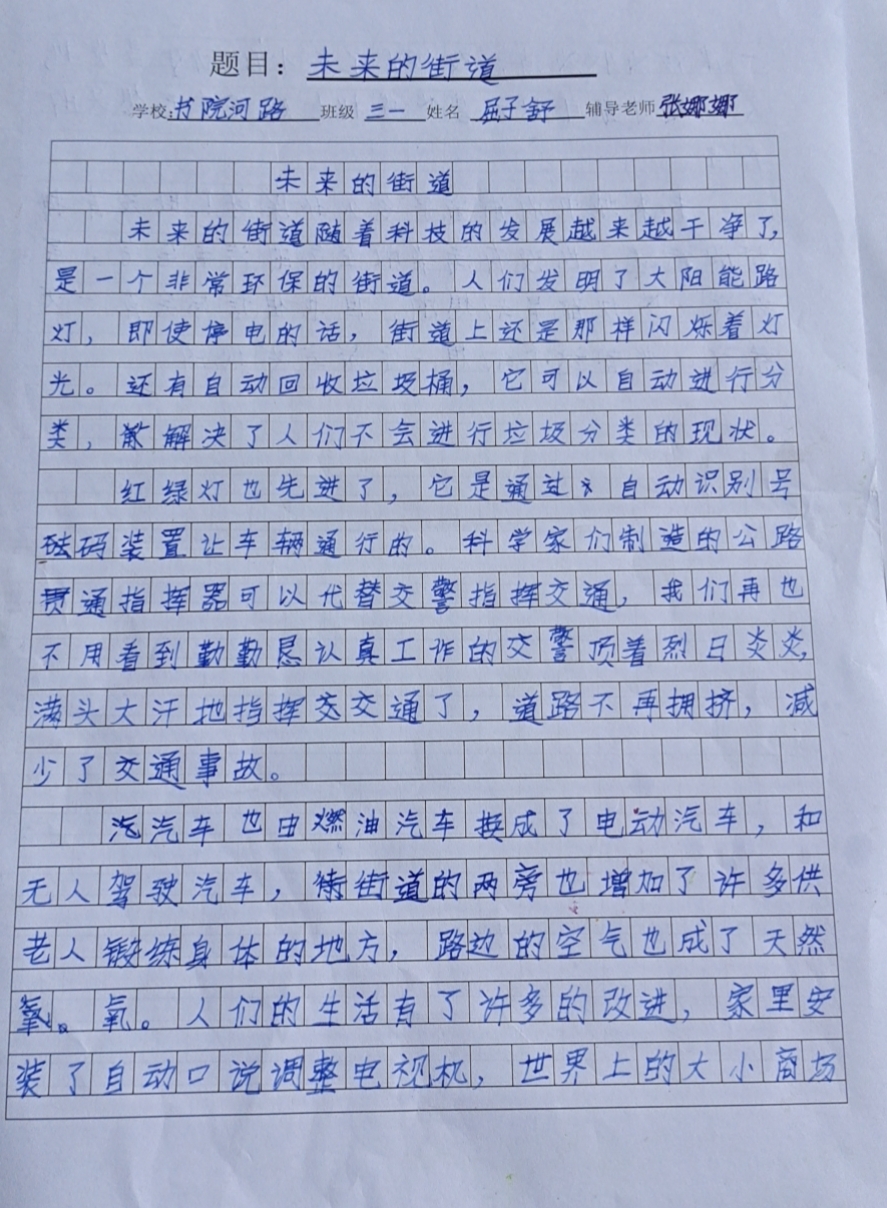 题目：未来的街道
学校:书院河路 班级 三一 姓名 屈子舒 辅导老师 张娜娜
未来的街道
未来的街道随着科技的发展越来越干净了,
是一个非常环保的街道。人们发明了太阳能路
灯，即使停电的话，街道上还是那样闪烁着灯
光。还有自动回收垃圾桶，它可以自动进行分
类，解决了人们不会进行垃圾分类的现状。
红绿灯也先进了，它是通过自动识别号
码装置让车辆通行的。科学家们制造的公路
贯通指挥器可以代替交警指挥交通，我们再也
不用看到勤勤恳认真工作的交警顶着烈日炎炎,
满头大汗地指挥交交通了，道路不再拥挤，减
少了交通事故。
汽汽车也由燃油汽车换成了电动汽车，和
无人驾驶汽车，街道的两旁也增加了许多供
老人锻练身体的地方，路边的空气也成了天然
氧。氧。人们的生活有了许多的改进，家里安
装了自动口说调整电视机，世界上的大小商场